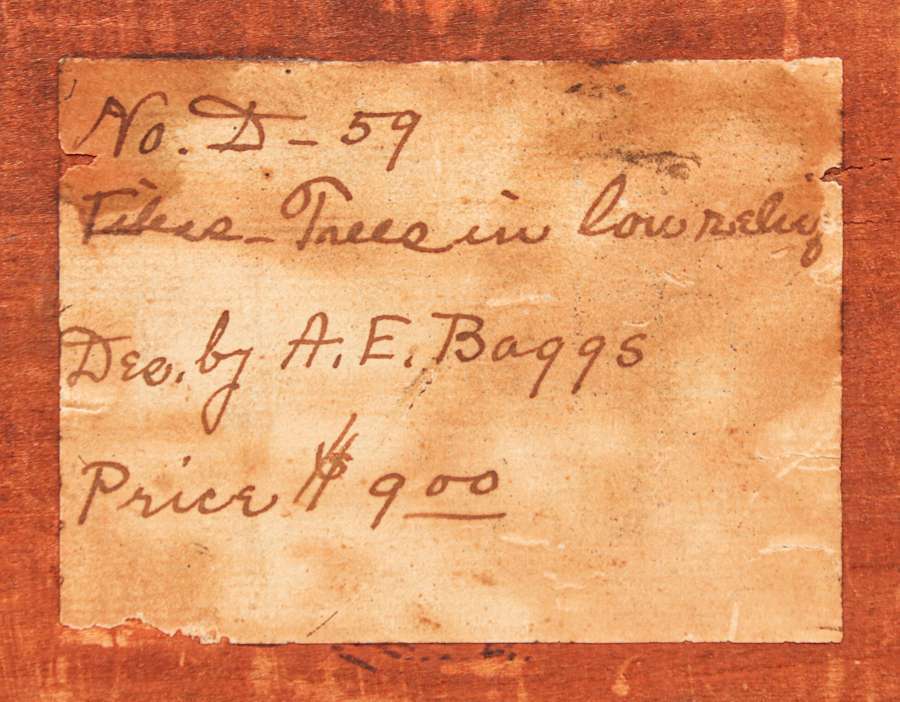 No. D - 59
Tiles - Trees in low relief
Dec. by A. E. Baggs
Price $9 00